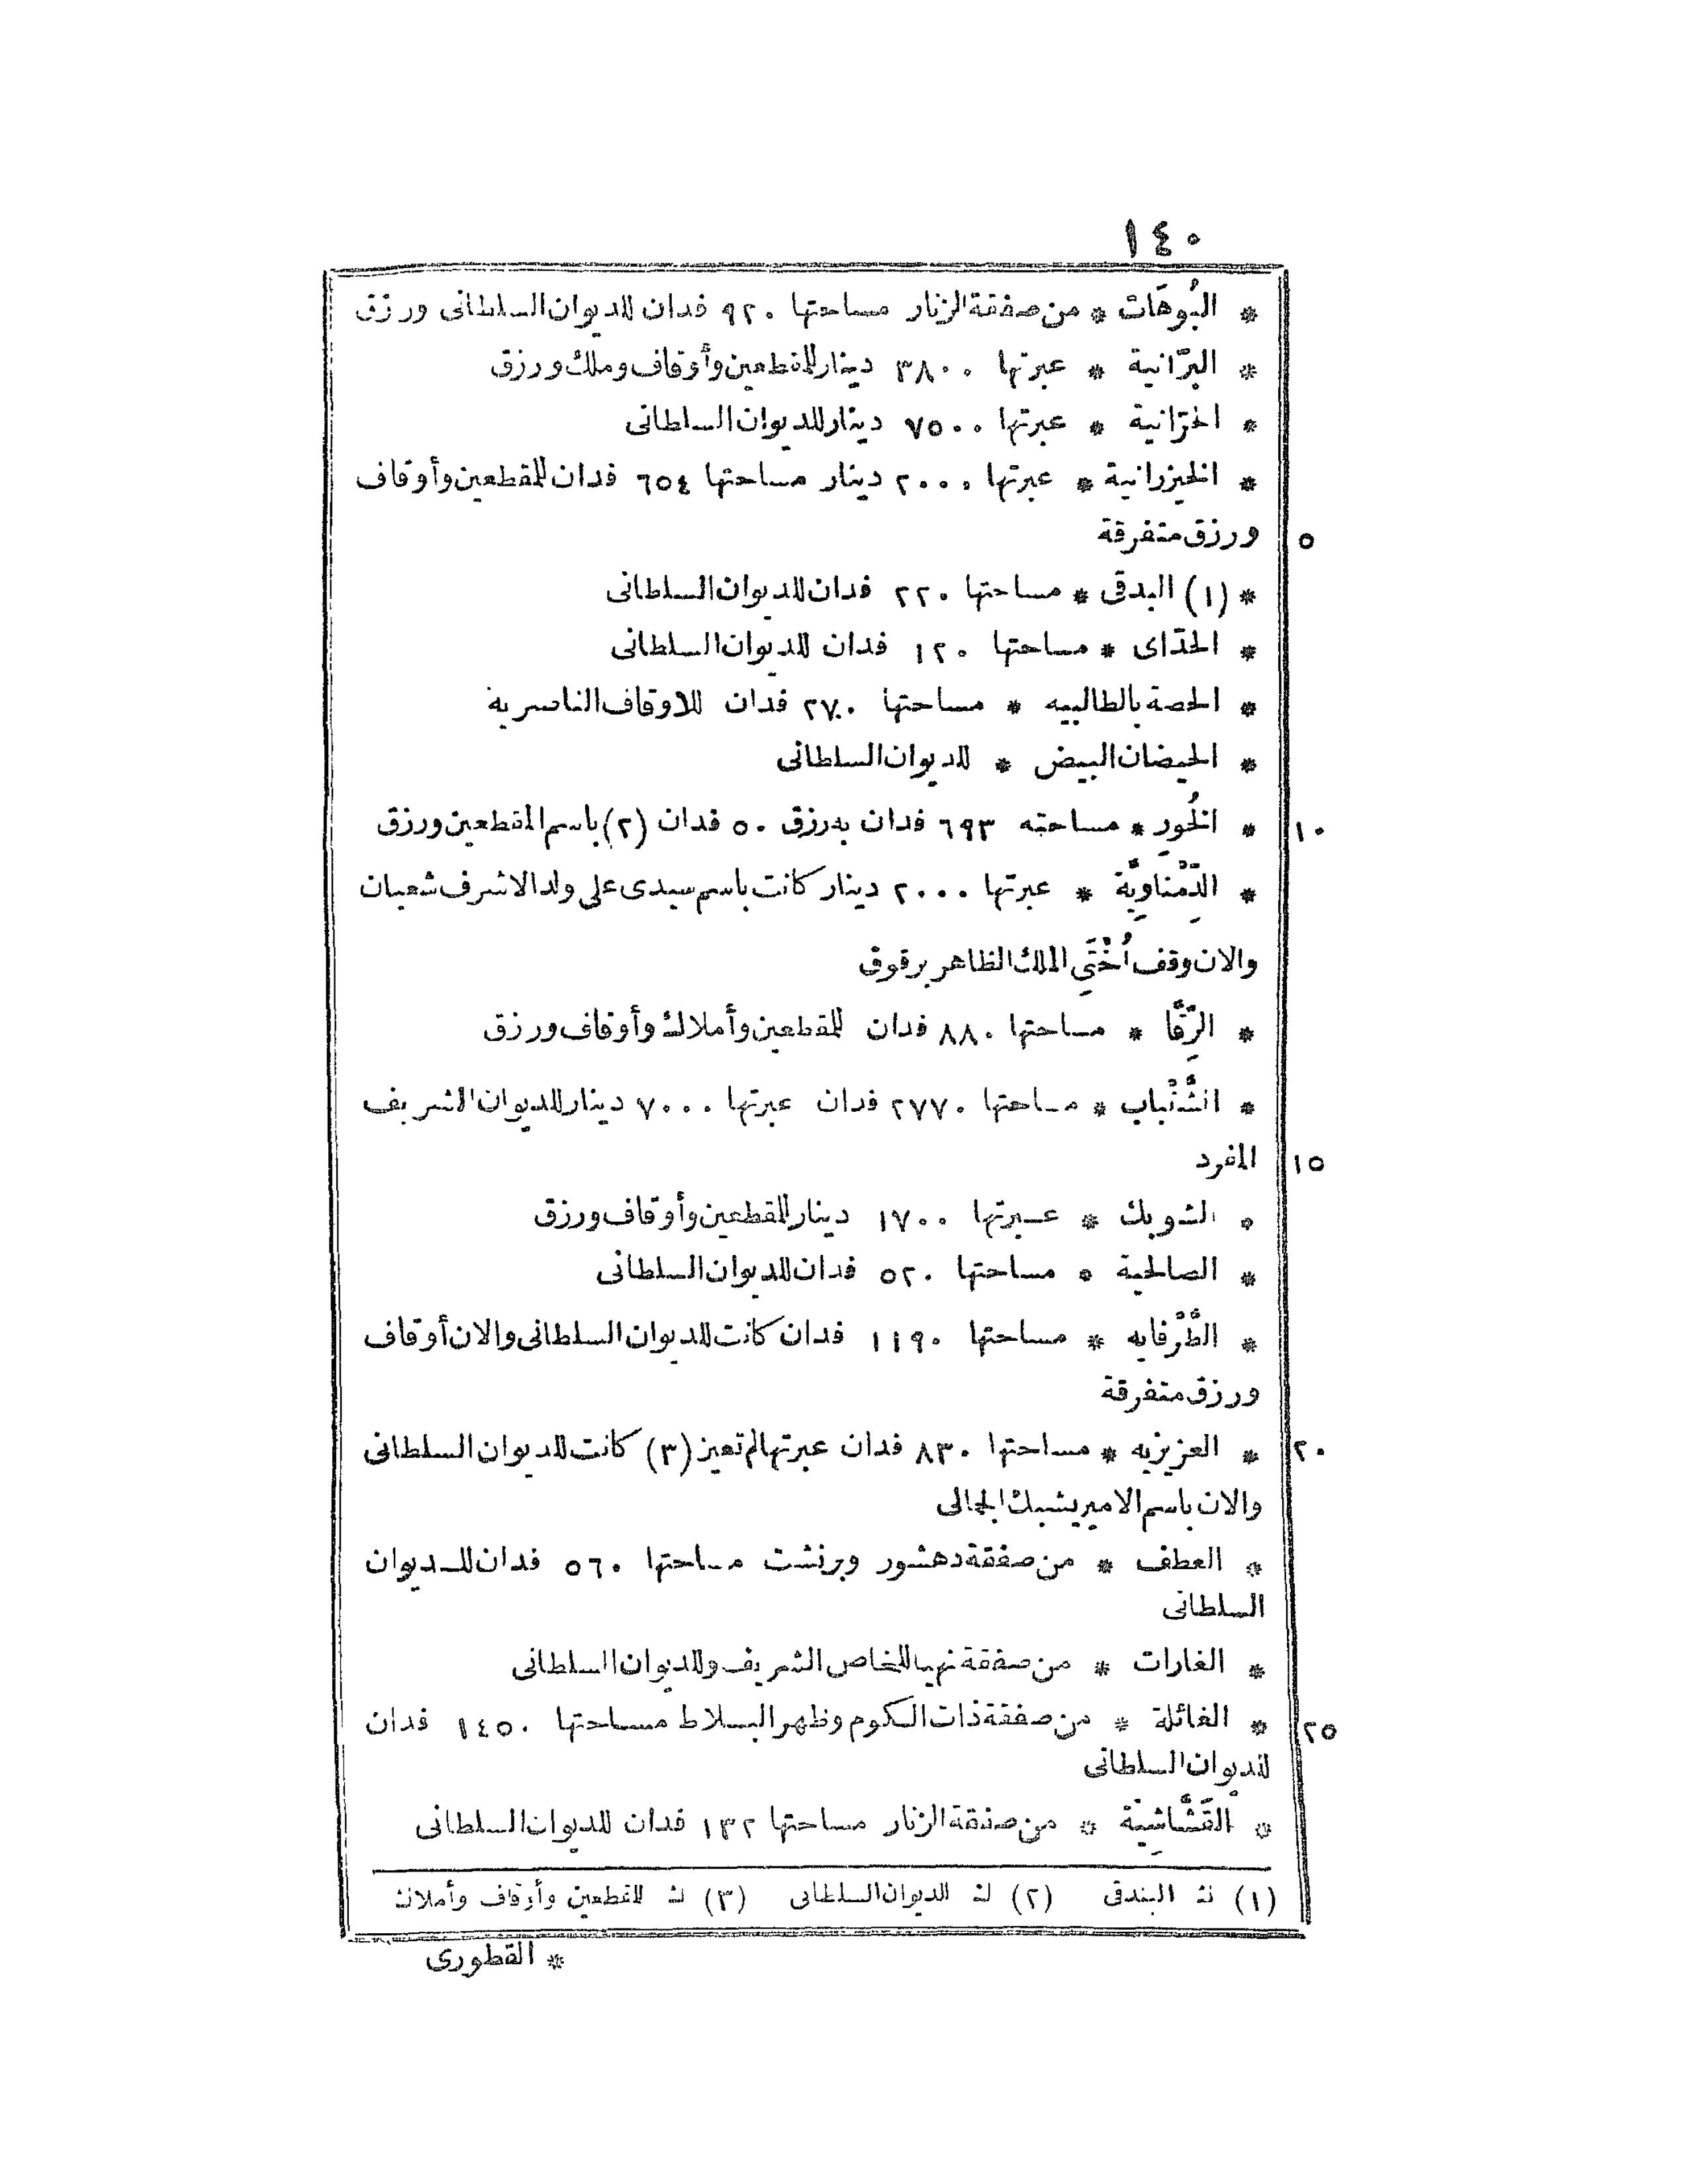 ١٤٠
* البُوهَات * من صفقة الزنار مساحتها ٩٢٠ فدان للديوان السلطانى ورزق
* البرّانية * عبرتها ٣٨٠٠ دينار للمقطعين وأوقاف وملك ورزق
* الحرّانية * عبرتها ٧٥٠٠ دينار للديوان السلطانى
* الخيزرانية * عبرتها ٢٠٠٠ دينار مساحتها ٦٥٤ فدان للمقطعين وأوقاف
٥ ورزق متفرقة
* (١) البدقى * مساحتها ٢٢٠ فدان للديوان السلطانى
* الحدّاى * مساحتها ١٢٠ فدان للديوان السلطانى
* الحصة بالطالبيه * مساحتها ٢٧٠ فدان للاوقاف الناصرية
* الحيضان البيض * للديوان السلطانى
١٠ * الخُورِ * مساحته ٦٩٣ فدان به رزق ٥٠ فدان (٢) باسم المقطعين ورزق
* الدِّمْناوِيَّة * عبرتها ٢٠٠٠ دينار كانت باسم سيدى على ولد الاشرف شعبان
والان وقف أُخْتَيِ الملك الظاهر برقوق
* الرِّقَّا * مساحتها ٨٨٠ فدان للمقطعين وأملاك وأوقاف ورزق
* الشَّنْباب * مساحتها ٢٧٧٠ فدان عبرتها ٧٠٠٠ دينار للديوان الشريف
١٥ المفرد
* الشوبك * عبرتها ١٧٠٠ دينار للمقطعين وأوقاف ورزق
* الصالحية * مساحتها ٥٢٠ فدان للديوان السلطانى
* الطَّرْفايه * مساحتها ١١٩٠ فدان كانت للديوان السلطانى والان أوقاف
ورزق متفرقة
٢٠ * العزيزيه * مساحتها ٨٣٠ فدان عبرتها لم تعين (٣) كانت للديوان السلطانى
والان باسم الامير يشبك الجمالى
* العطف * من صفقة دهشور وبرنشت مساحتها ٥٦٠ فدان للديوان
السلطانى
* الغارات * من صفقة نهيا للخاص الشريف وللديوان السلطانى
٢٥ * الغائلة * من صفقة ذات الكوم وظهر البلاط مساحتها ١٤٥٠ فدان
للديوان السلطانى
* القَشَّاشِيَّة * من صفقة الزنار مساحتها ١٣٢ فدان للديوان السلطانى
(١) نث البندقى (٢) لث الديوان السلطانى (٣) لث للمقطعين وأوقاف وأملاك
* القطورى